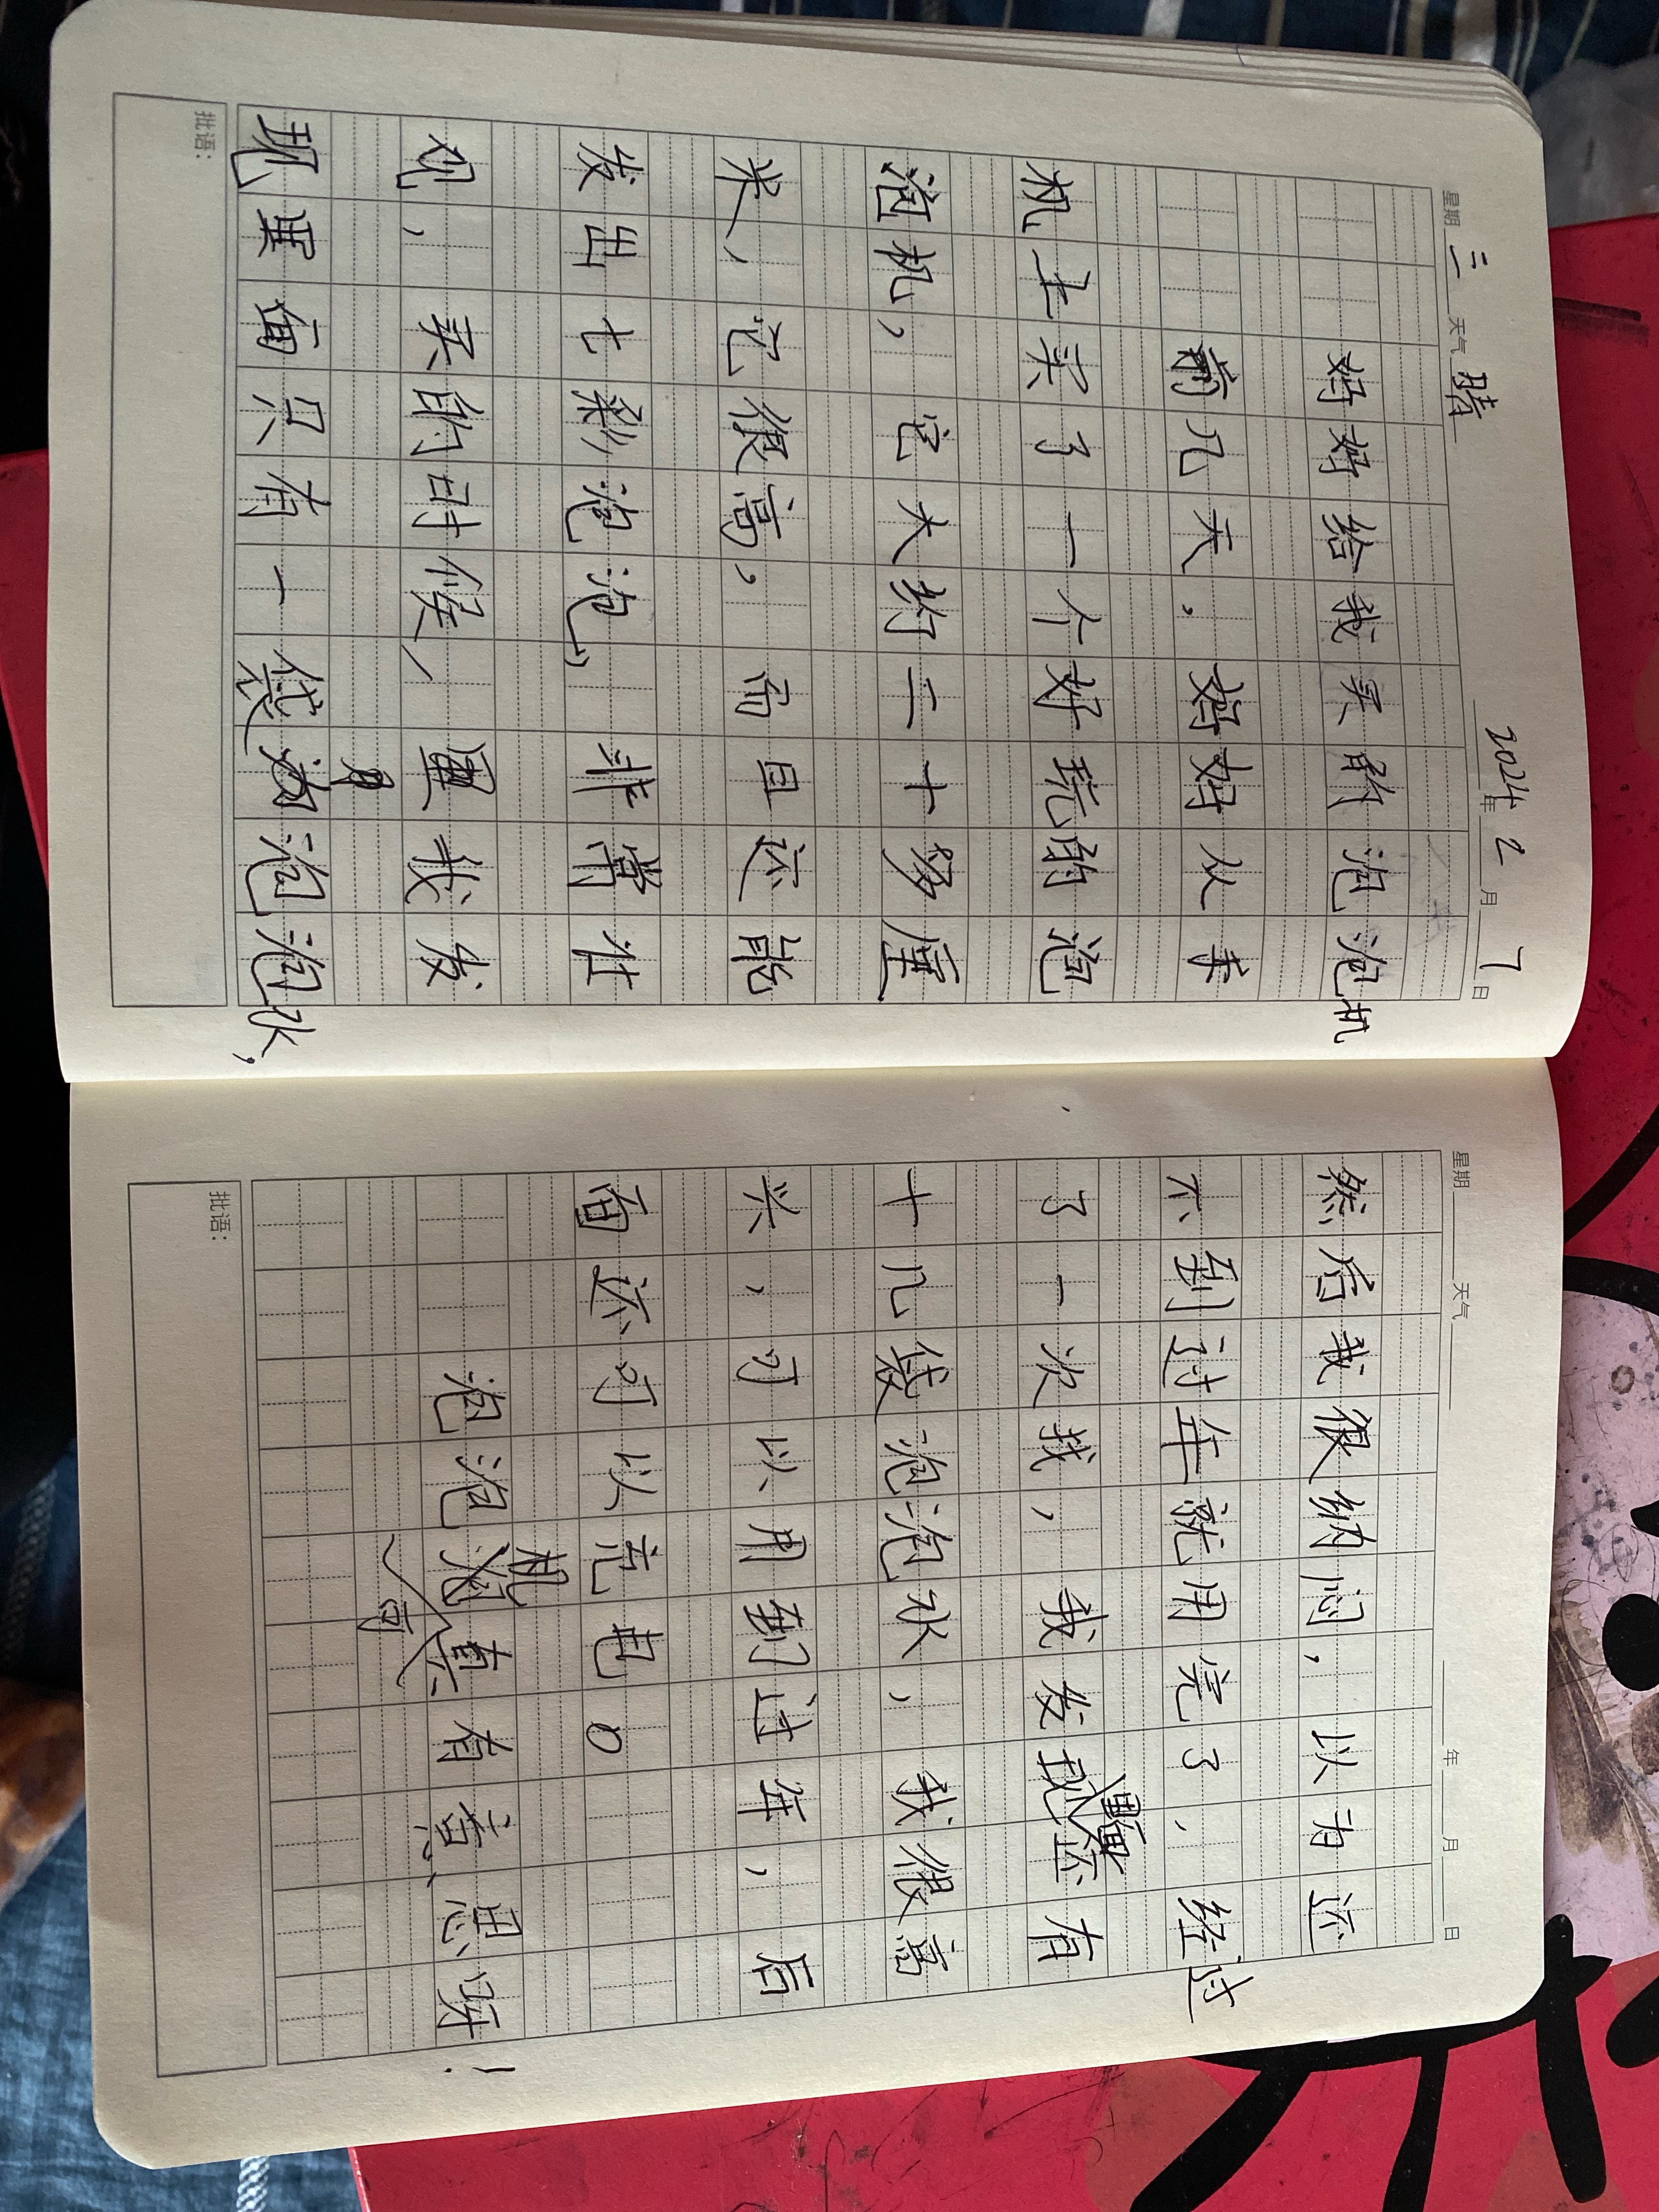 星期 三 天气 晴 2024年2月7日
妈妈给我买的泡泡机
前几天,妈妈从手
机上买了一个好玩的泡
泡机,它大约二十多厘
米,它很高,而且还能
发出七彩泡泡,非常壮
观,买的时候,我发
现里面只有一袋泡泡水,
批语:
星期 天气 年 月 日
然后我很纳闷,以为还
不到过年就用完了,经过
了一次找,我发现里面还有
十几袋泡泡水,我很高
兴,可以用到过年,后
面还可以充电。
泡泡机可真有意思呀!
批语: